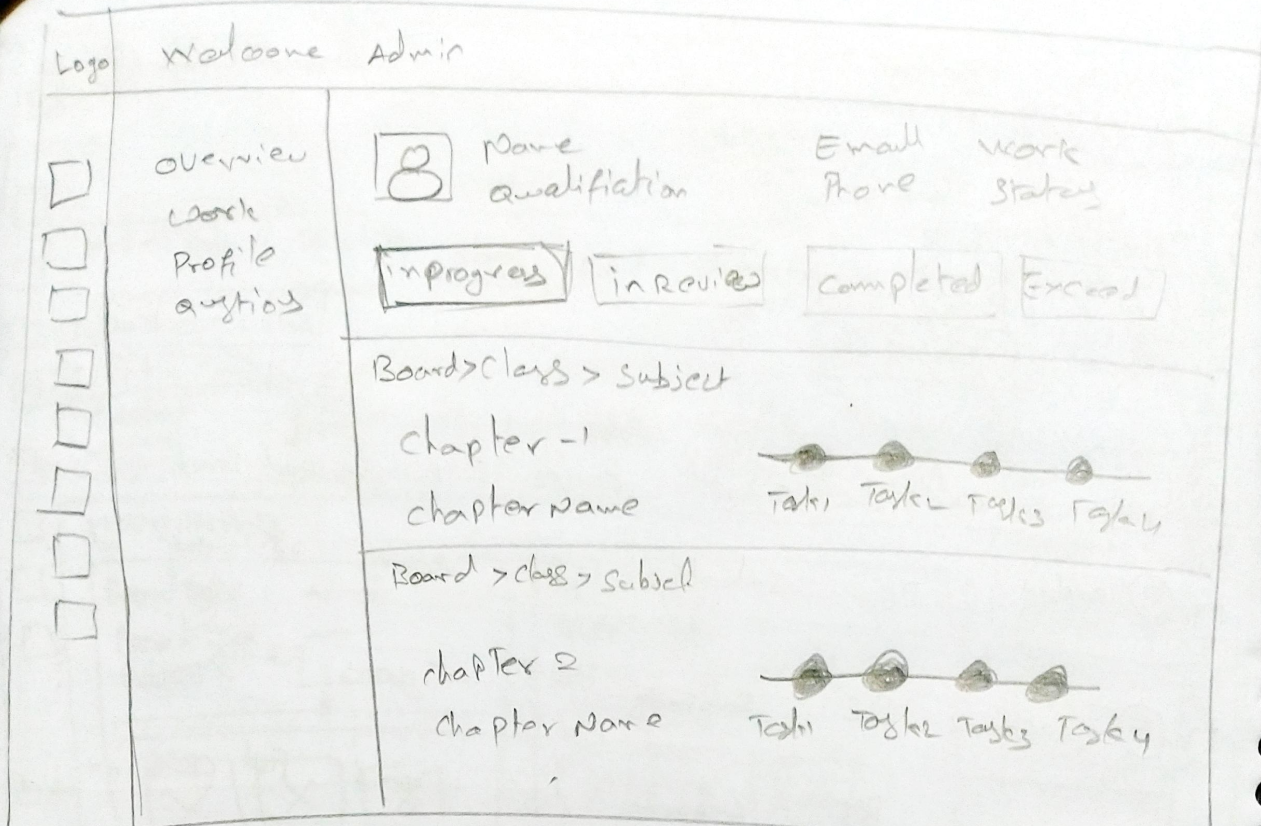 Logo
Welcome Admin
overview
work
Profile
Name
Qualifiction
Email
Phone
work
Status
inprogress
in Review
Completed
Board>Class > Subject
Chapter -1
chapter Name
Task1 Task2 Task3 Task4
Board >class > Subject
chapTer 2
Chapter Name
Task1 Task2 Task3 Task4